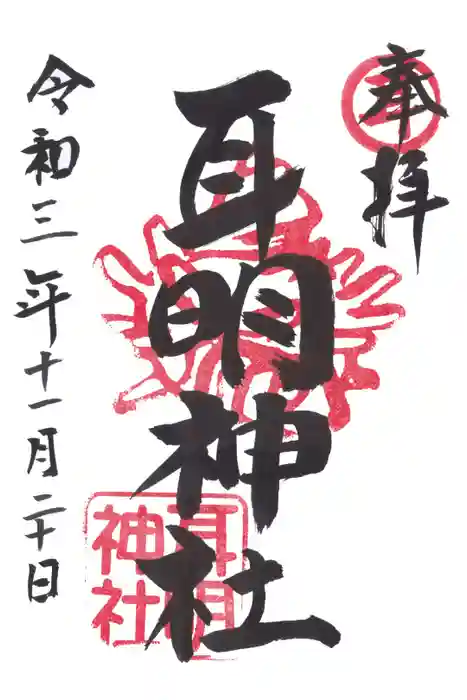 奉拝
耳明神社
耳明
神社
令和三年十一月二十日